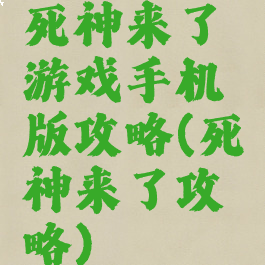 死神来了
游戏手机
版攻略(死
神来了攻
略)